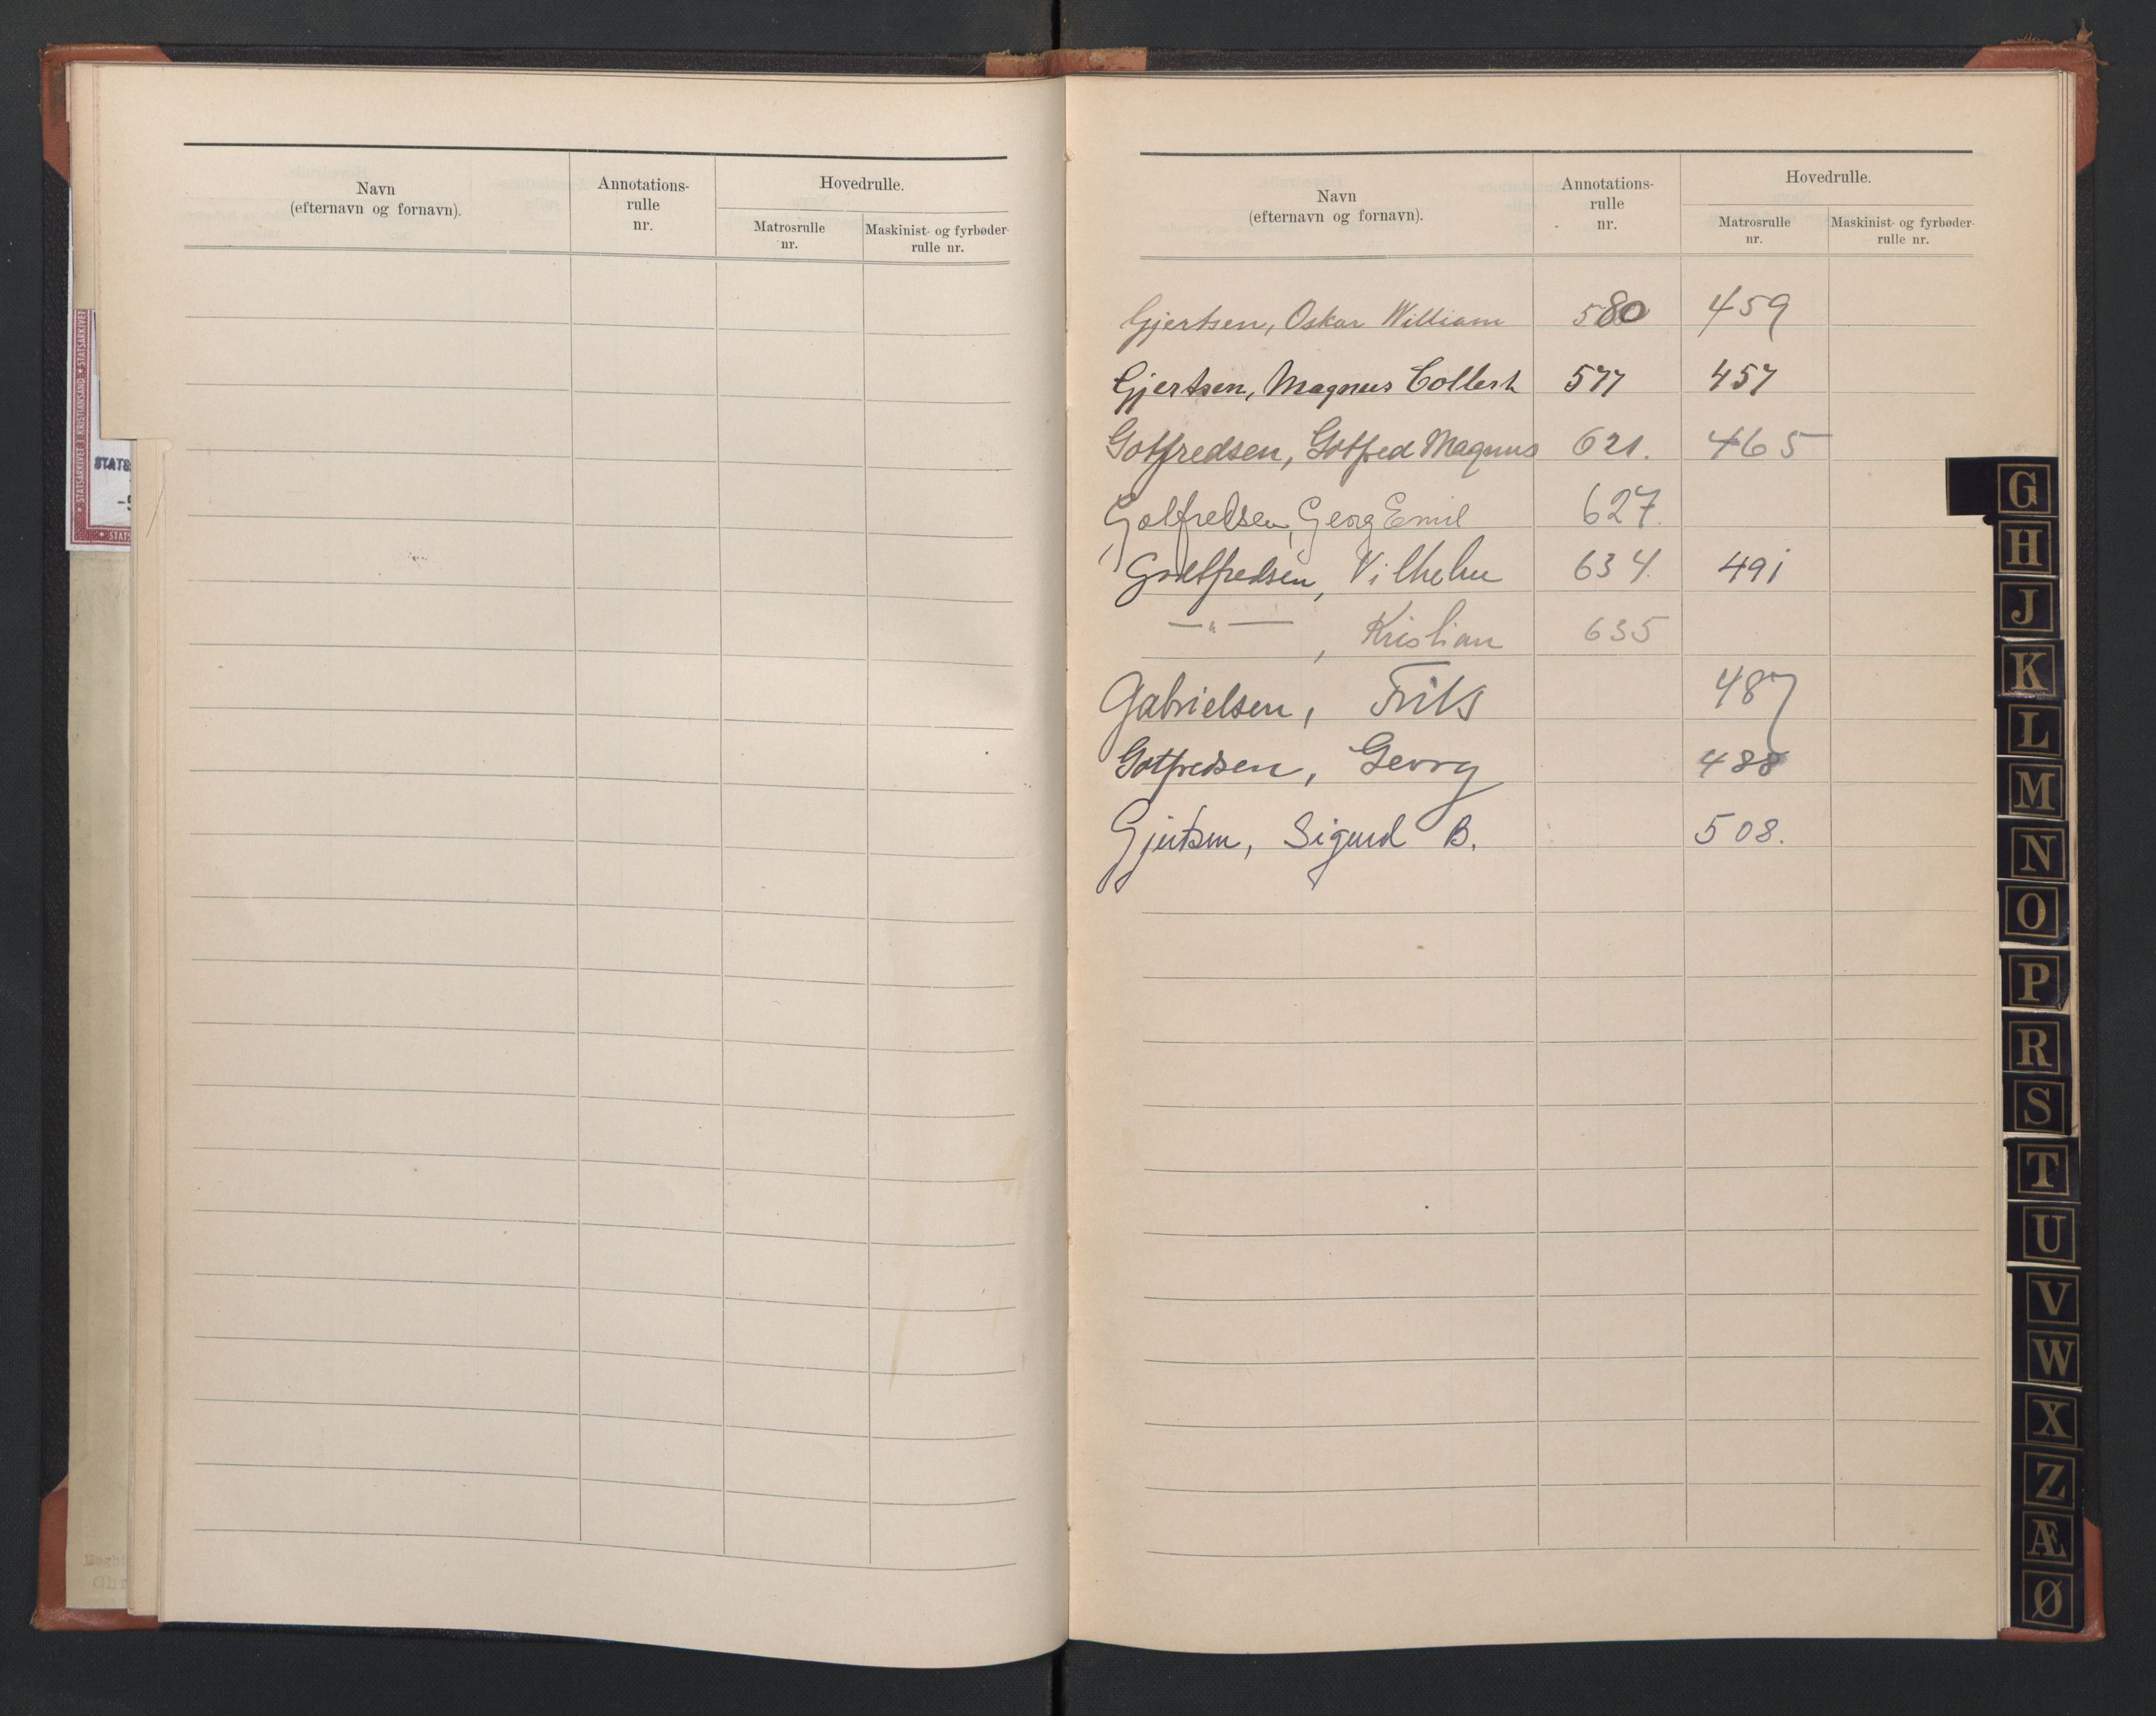 Navn
(efternavn og fornavn).
Annotations-
rulle
nr.
Hovedrulle.
Matrosrulle
nr.
Maskinist- og fyrbøder-
rulle nr.
STATSARKIVET I KRISTIANSAND
STATS
Navn
(efternavn og fornavn).
Annotations-
rulle
nr.
Hovedrulle.
Matrosrulle
nr.
Maskinist- og fyrbøder-
rulle nr.
Gjertsen, Oskar William 580 459
Gjertsen, Magnus 577 457
Gotfredsen, Gotfred Magnus 621. 465
Gotfredsen, Georg Emil 627.
Godtfredsen, Vilhelm 634. 491
—"— , Kristian 635
Gabrielsen, Frits 487
Gotfredsen, Georg 488
Gjertsen, Sigurd B. 508.
G
H
J
K
L
M
N
O
P
R
S
T
U
V
W
X
Z
Æ
Ø